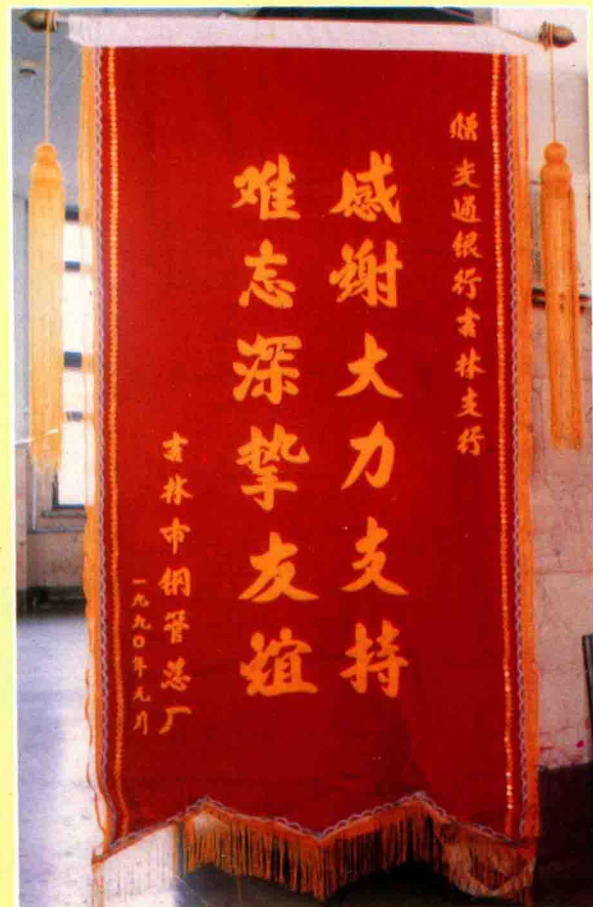 赠交通银行吉林支行
感谢大力支持
难忘深挚友谊
吉林市钢管总厂
一九九〇年元月